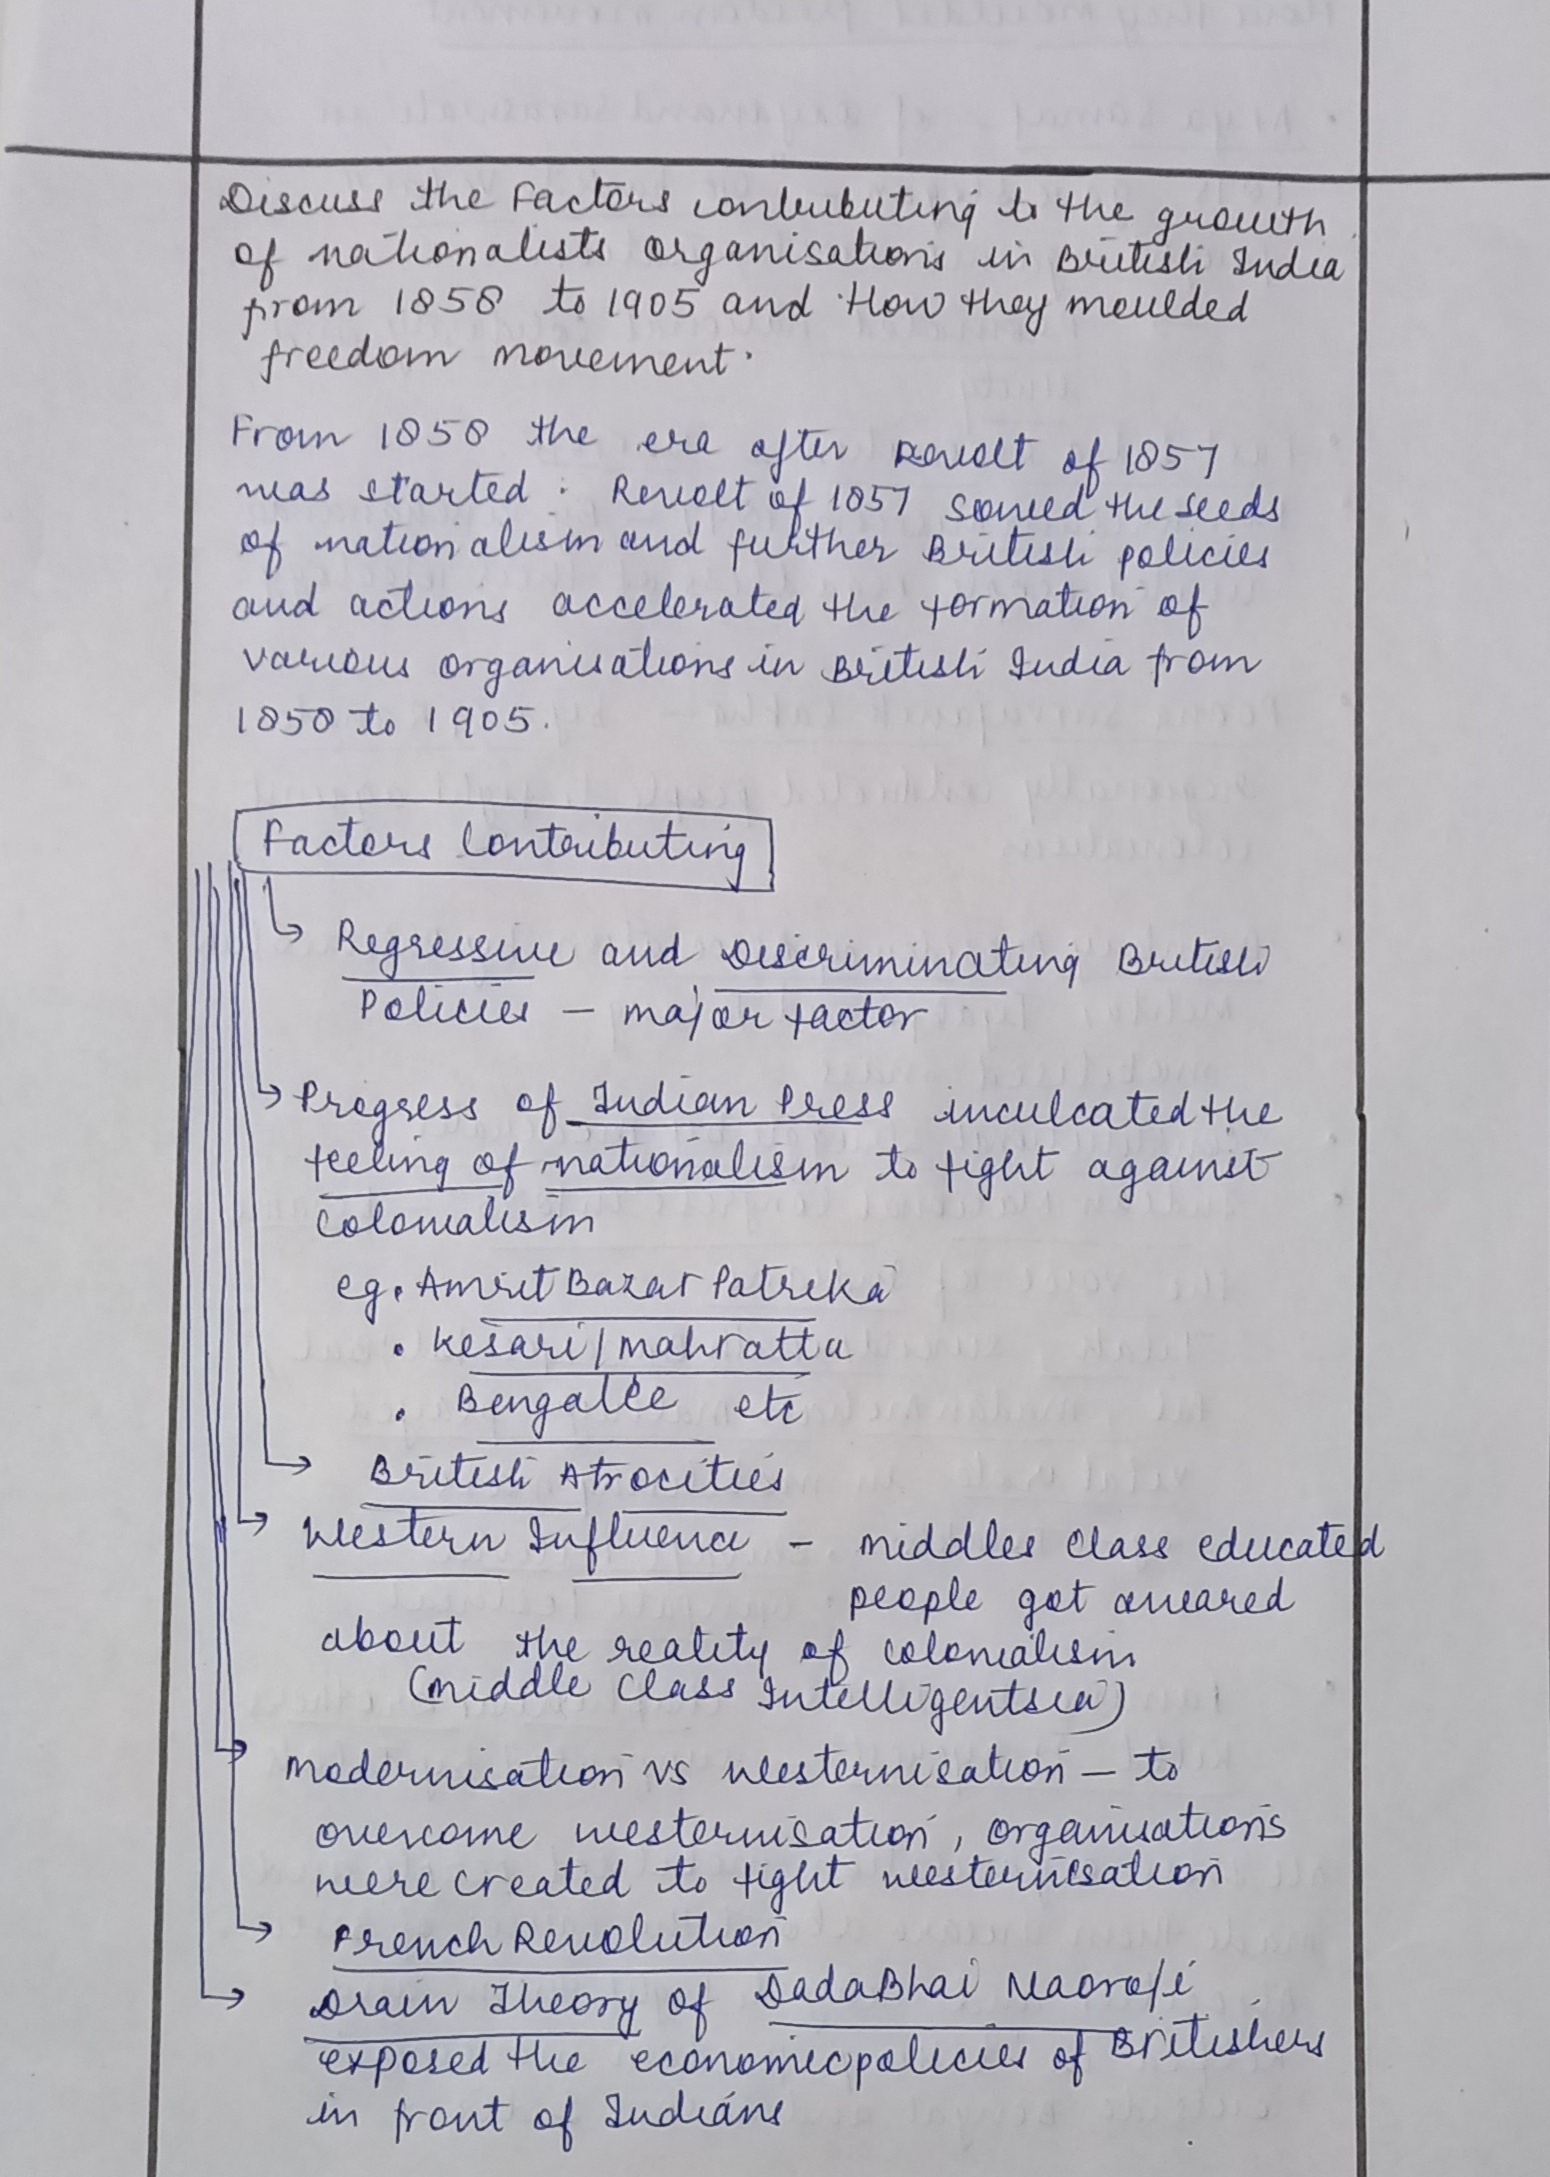 Discuss the Factors contributing to the growth
of nationalists organisations in British India
from 1858 to 1905 and How they moulded
freedom movement.
From 1858 the era after Revolt of 1857
was started. Revolt of 1857 sowed the seeds
of nationalism and further British policies
and actions accelerated the formation of
various organisations in British India from
1858 to 1905.
Factors Contributing
Regressive and Discriminating British
Policies – major factor
Progress of Indian Press inculcated the
feeling of nationalism to fight against
colonialism
eg. Amrit Bazar Patrika
• Kesari/mahratta
• Bengalee etc
British Atrocities
Western Influence – middles class educated
people got aweared
about the reality of colonialism
(middle class Intelligentsia)
modernisation vs westernisation – to
overcome westernisation, organisations
were created to fight westernisation
French Revolution
Drain Theory of DadaBhai Naoroji
exposed the economic policies of Britishers
in front of Indians